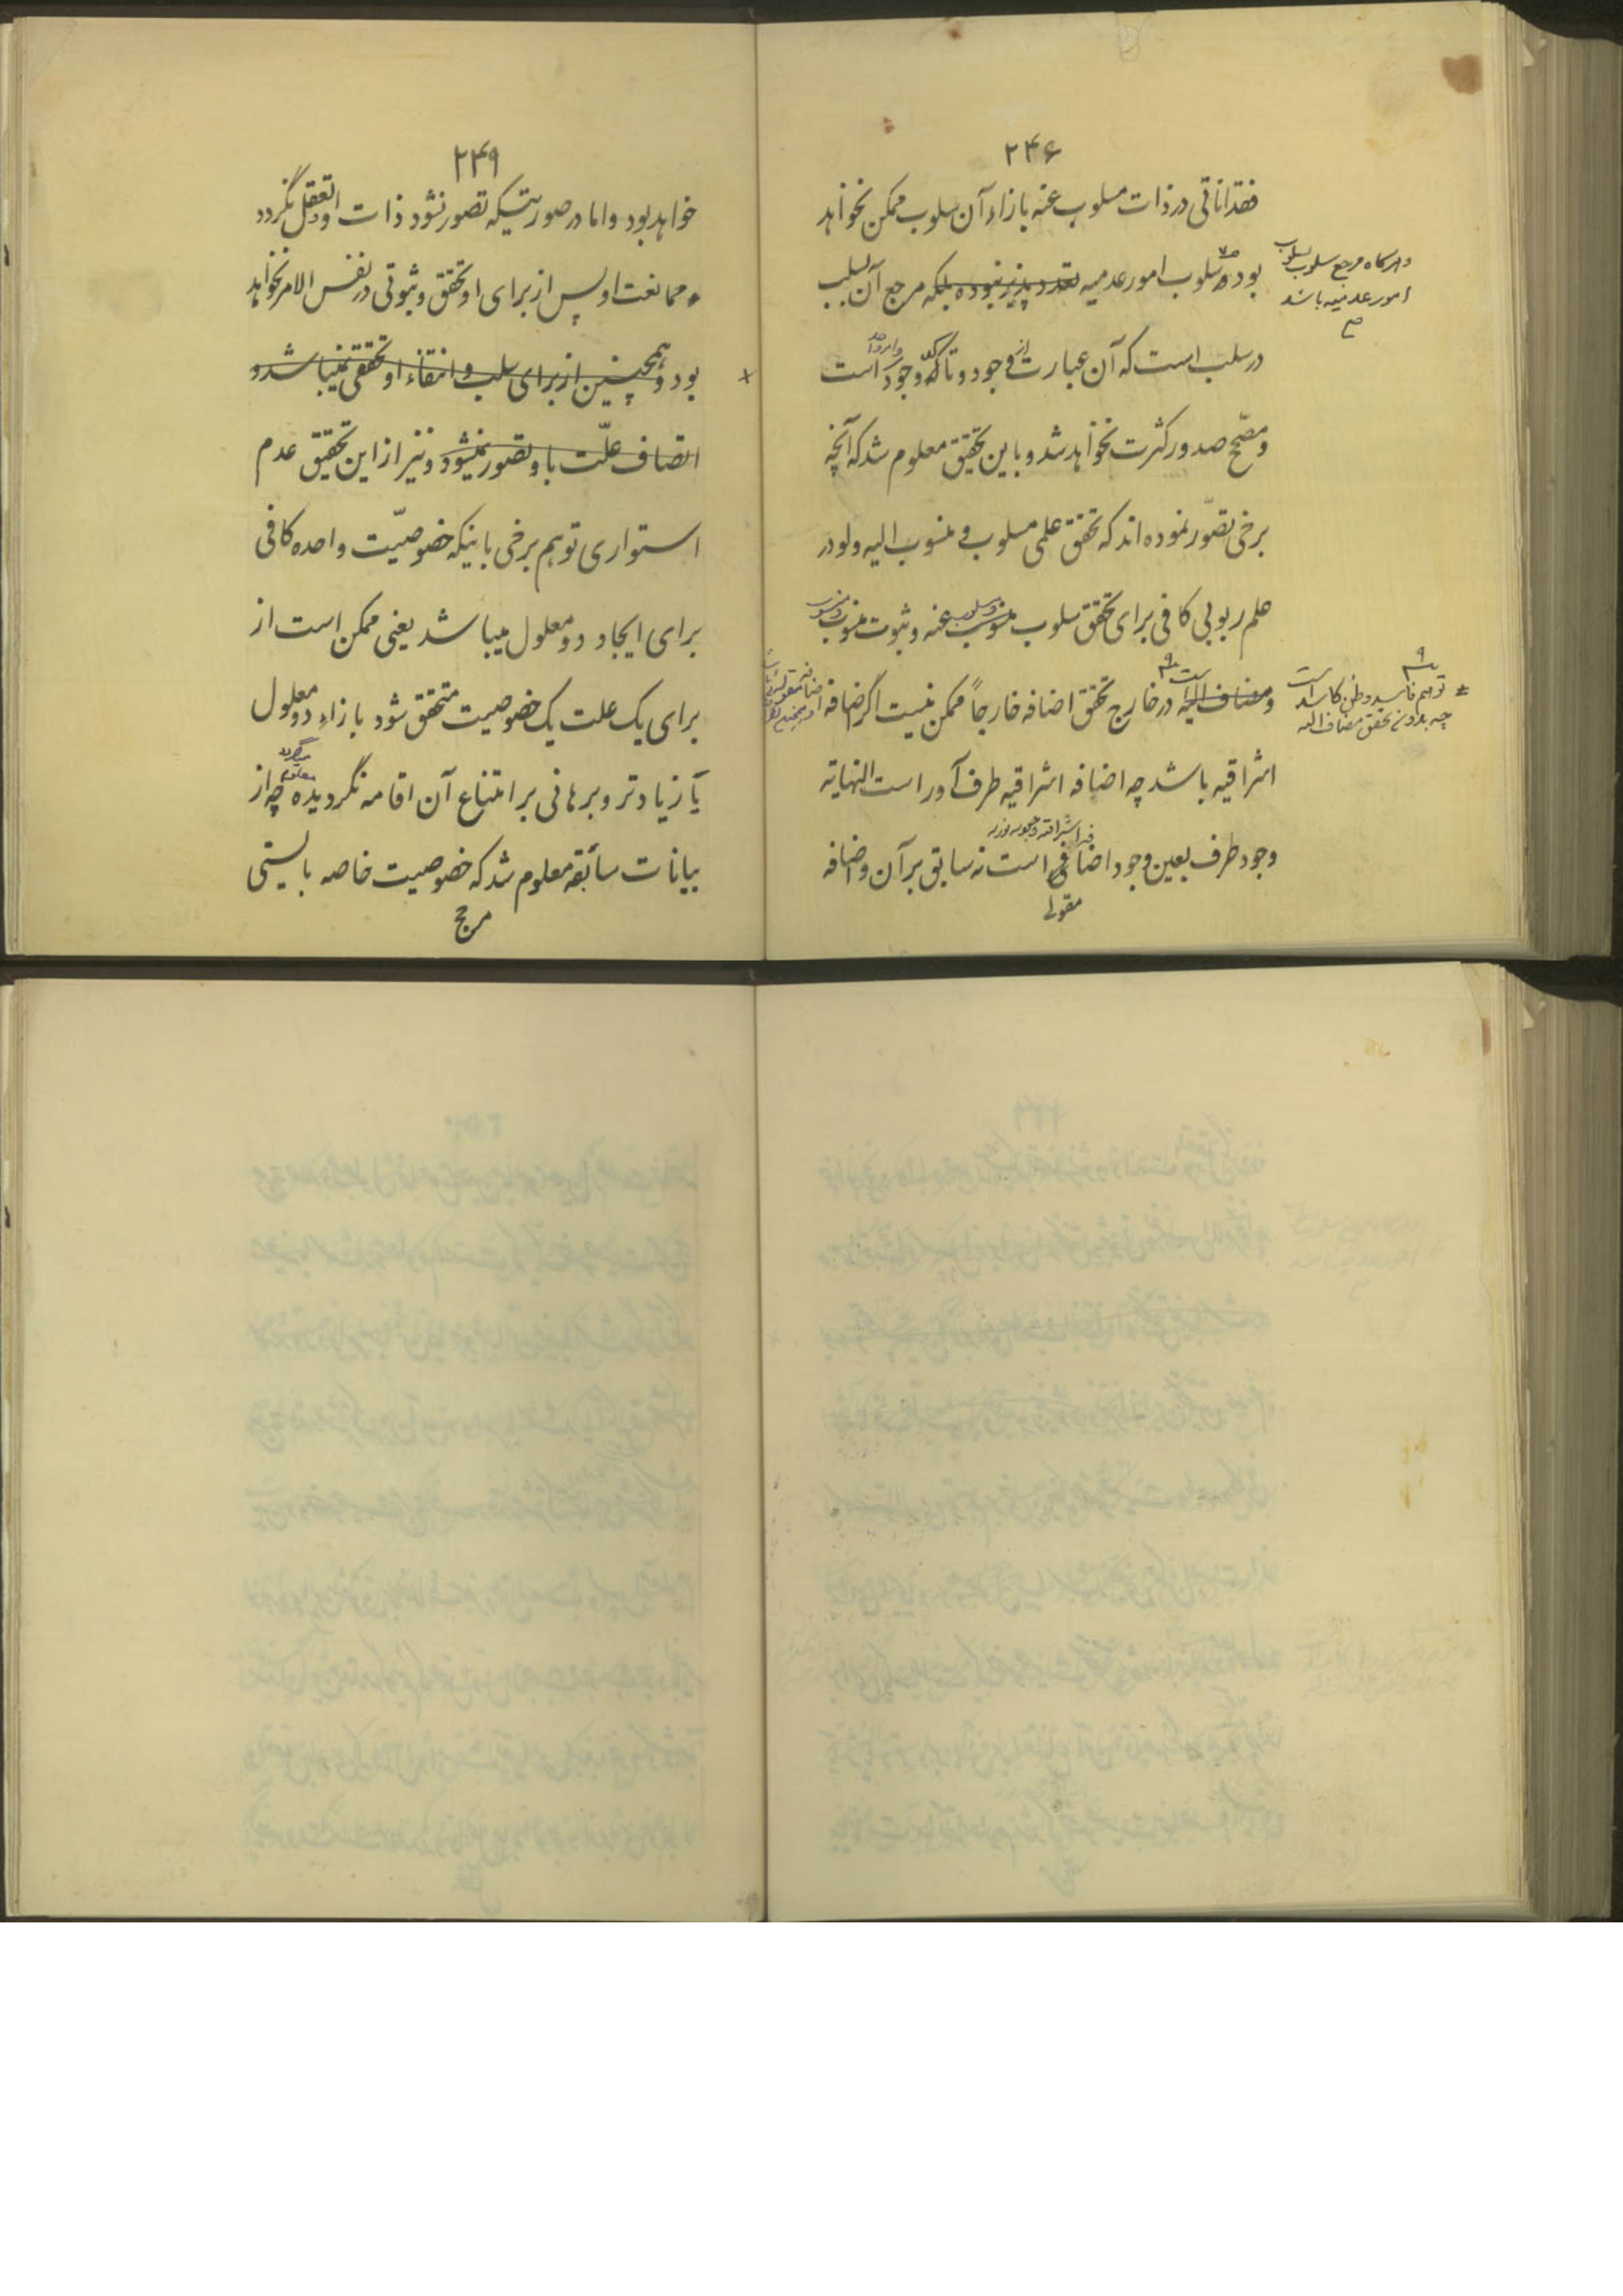 ۲۴۶
فقداناتی در ذات مسلوب عنه بازاء آن سلوب ممکن نخواهد
بود و سلوب امور عدمیه تعدد پذیر نبوده بلکه مرجع آن بسلب
در سلب است که آن عبارت از وجود و تاکد وجود است
و مصحح صدور کثرت نخواهد شد و باین تحقیق معلوم شد که آنچه
برخی تصوّر نموده اند که تحقق علمی مسلوب و منسوب الیه ولو در
علم ربوبی کافی برای تحقق سلوب منسوب عنه و ثبوت منسوب
و مضاف الیه در خارج تحقق اضافه خارجاً ممکن نیست اگر اضافه
اشراقیه باشد چه اضافه اشراقیه طرف آور است النهایه
وجود طرف بعین وجود اضافی است نه سابق بر آن و اضافه
مقولی
و هرگاه مرجع سلوب بسلوب
امور عدمیه باشد
توهم فاسد و ظن کاسد است
چه بدون تحقق مضاف الیه
۲۴۹
خواهد بود و اما در صورتیکه تصور نشود ذات و تعقل نگردد
ممانعت او پس از برای او تحقق و ثبوتی در نفس الامر نخواهد
بود و همچنین از برای سلب و انتفاء او تحققی نمیباشد و
اتصاف علّت باو تصور نمیشود و نیز از این تحقیق عدم
استواری توهم برخی باینکه خصوصیّت واحده کافی
برای ایجاد دو معلول میباشد یعنی ممکن است از
برای یک علت یک خصوصیت متحقق شود بازاء دو معلول
یا زیادتر و برهانی بر امتناع آن اقامه نگردیده چه از
بیانات سابقه معلوم شد که خصوصیت خاصه بایستی
مرجح